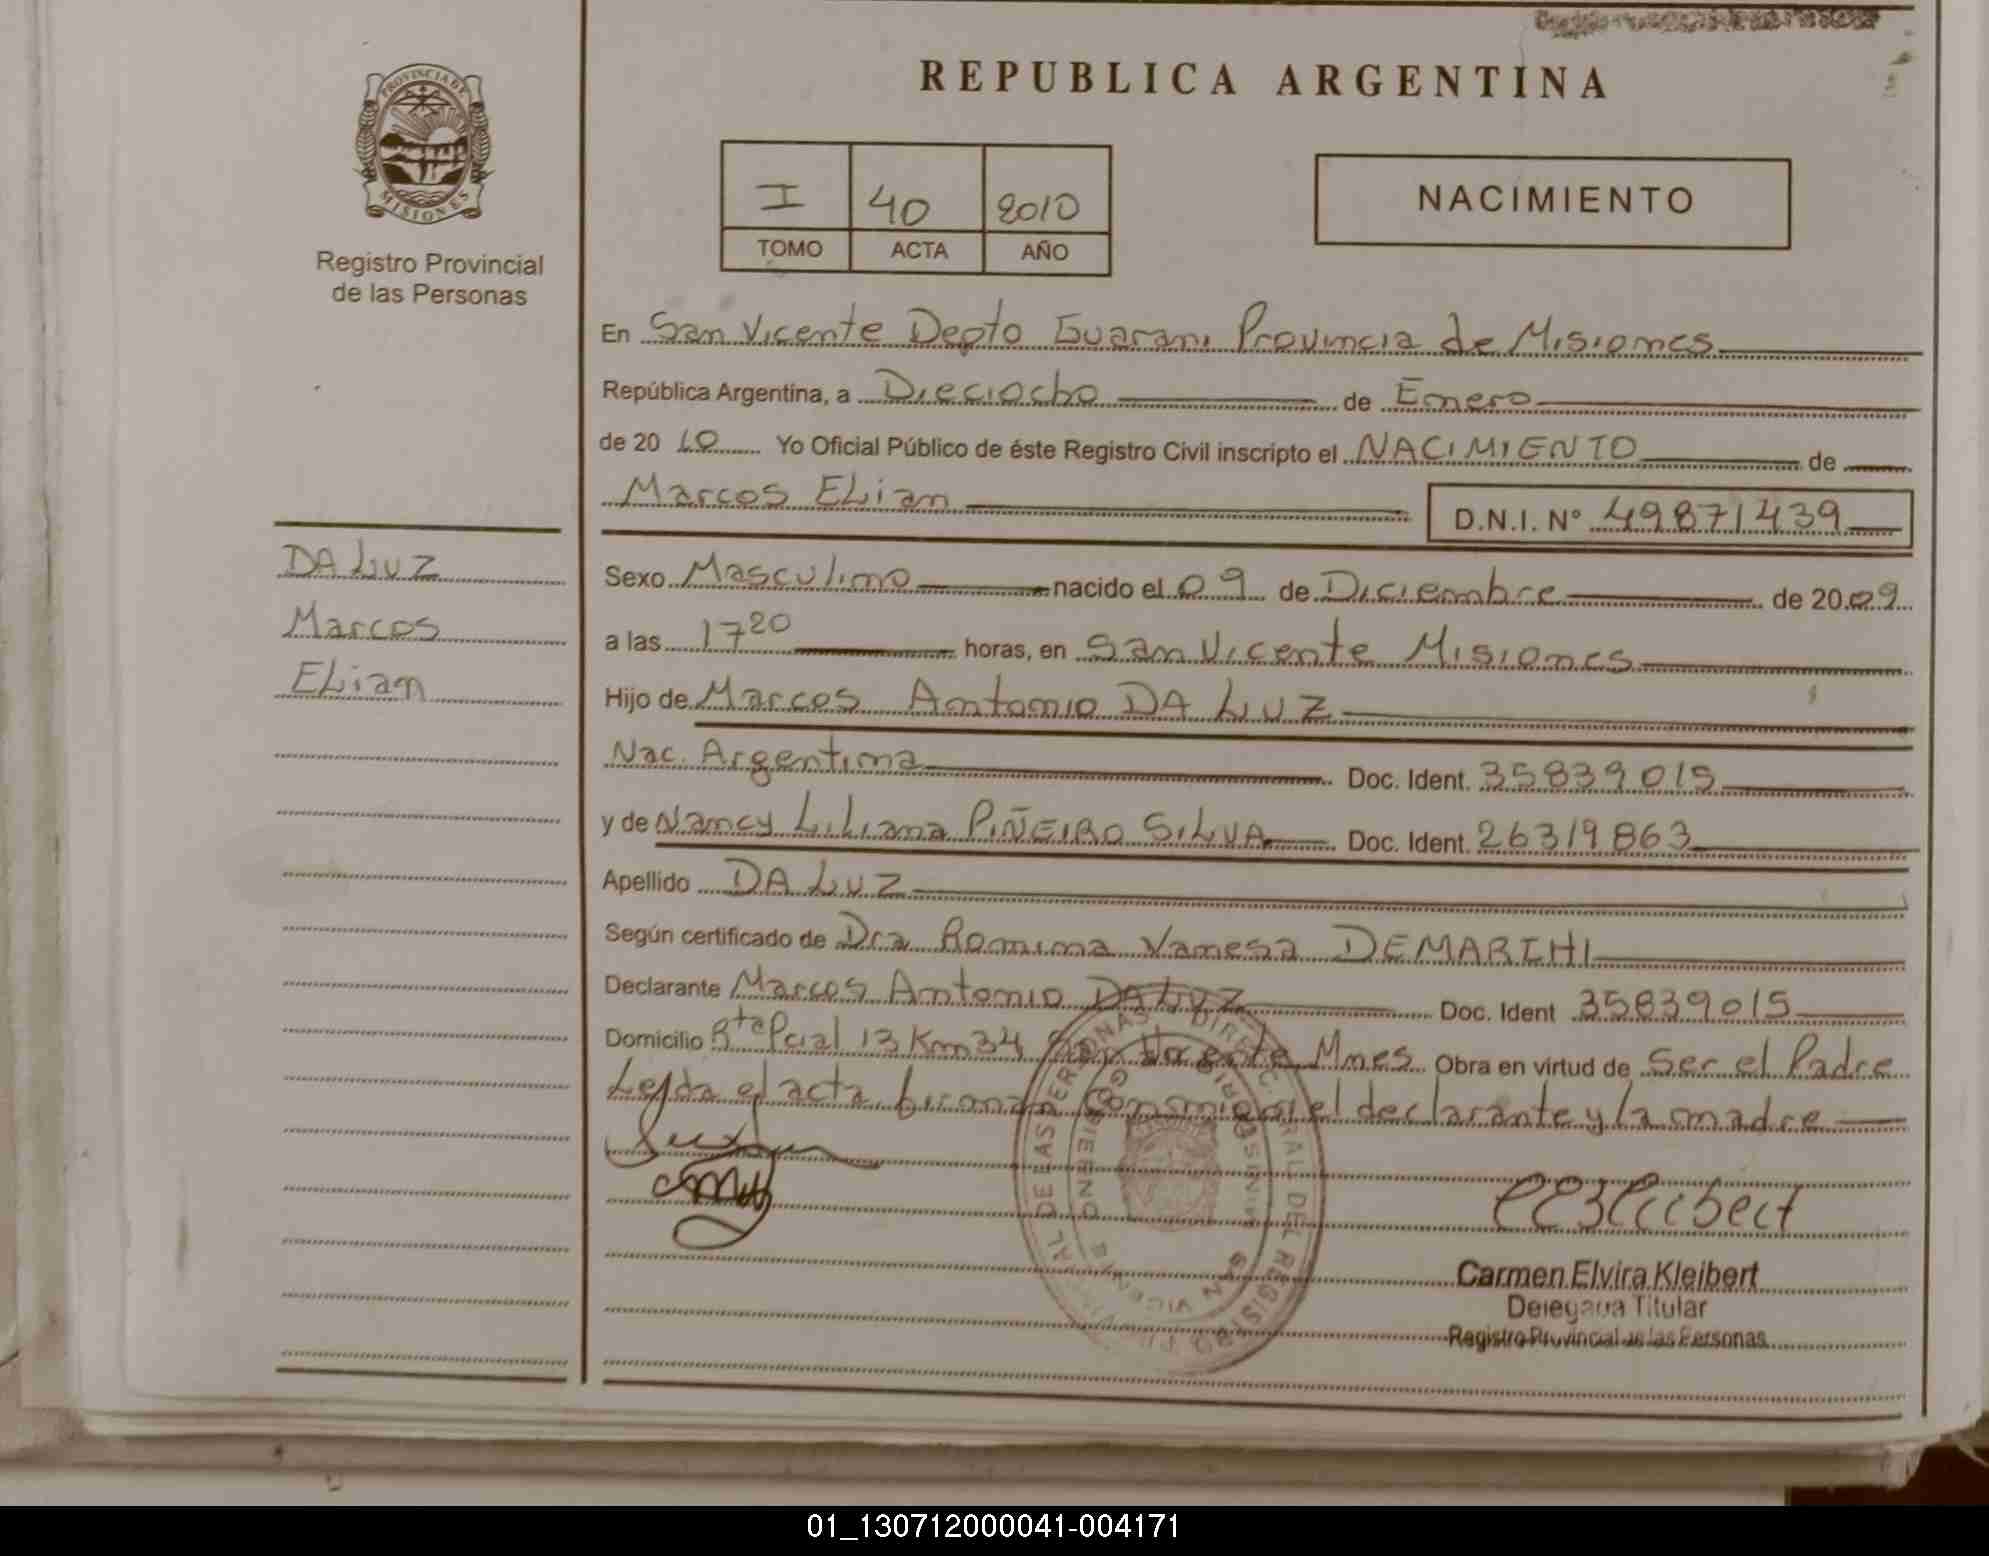 REPUBLICA ARGENTINA
PROVINCIA DE
MISIONES
Registro Provincial
de las Personas
I 40 2010
TOMO ACTA AÑO
NACIMIENTO
En San Vicente Depto Guarani Provincia de Misiones
República Argentina, a Dieciocho de Enero
de 20 10 Yo Oficial Público de éste Registro Civil inscripto el NACIMIENTO de
Marcos Elian D.N.I. N° 49871439
DA LUZ
Marcos
Elian
Sexo Masculino nacido el 09 de Diciembre de 2009
a las 17 20 horas, en San Vicente Misiones
Hijo de Marcos Antonio DA LUZ
Nac. Argentina Doc. Ident. 35839015
y de Nancy Liliana PIÑEIRO SILVA Doc. Ident. 26319863
Apellido DA LUZ
Según certificado de Dra Romina Vanesa DEMARCHI
Declarante Marcos Antonio DA LUZ Doc. Ident 35839015
Domicilio Rta Pcial 13 Km 34 San Vicente Mnes Obra en virtud de Ser el Padre
Leida el acta firman conmigo el declarante y la madre
Carmen Elvira Kleibert
Delegada Titular
Registro Provincial de las Personas
01_130712000041-004171